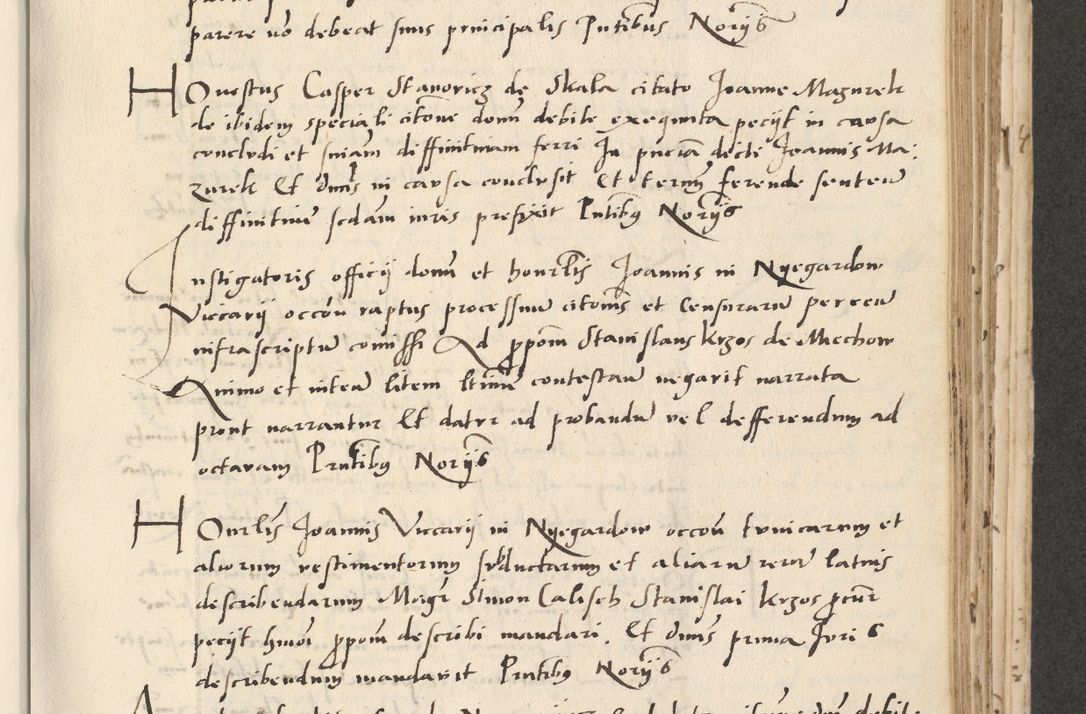 parere vo debeat suus principalis Pntibus Norijs
HOnestus Casper Stanoricz de Skala citato Joanne Mazurek
de ibidem speciali citone domi debite exequuta pecijt in causa
concludi et sniam diffinitiuam ferri In pnciā dicti Joannis Ma:
zurek Et dnus in causa conclusit Et termī ferende senten
diffinitiue scdam iuris prefixit Pntibus Norijs
Instigatoris officij domi et honrlis Joannis in Nyegardow
Viccarij occōn raptus processuū citonis et Censurarū per eū
infrascriptū comissi Ad ppom Stanislaus Krzos de Mechow
Animo et inten litem ltimē contestan negavit narrata
prout narrantur Et datur ad probandū vel defferendum ad
octavam Pntibus Norijs
HOnrlis Joannis Viccarij in Nyegardow occōn tunicarum et
aliorum vestimentorum subductarum et aliarū rerū latius
describendarum Magr Simon Calisch Stanislai Krzos pcur
pecijt hmoi ppom describi mandari. Et dnus prima Juris
describendum mandavit Pntibus Norijs